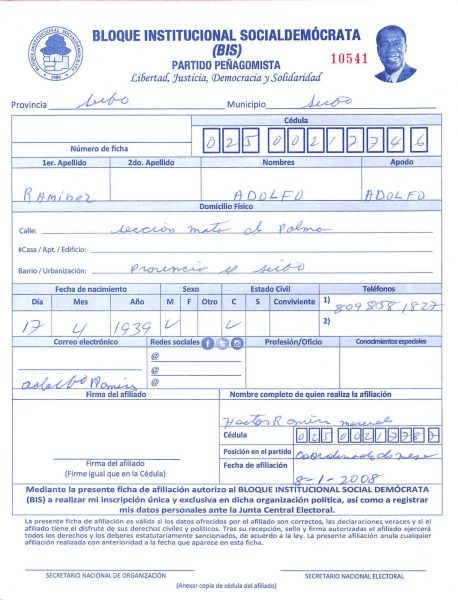 BLOQUE INSTITUCIONAL SOCIALDEMÓCRATA
BLOQUE INSTITUCIONAL SOCIALDEMÓCRATA
(BIS)
PARTIDO PEÑAGOMISTA
10541
Libertad, Justicia, Democracia y Solidaridad
Provincia Seibo Municipio Seibo
Cédula
Número de ficha 025 0021274 6
1er. Apellido 2do. Apellido Nombres Apodo
RAMIREZ ADOLFO ADOLFO
Domicilio Físico
Calle: seccion mata de Palma
#Casa / Apt. / Edificio:
Barrio / Urbanización: Provencia el seibo
Fecha de nacimiento Sexo Estado Civil Teléfonos
Día Mes Año M F Otro C S Conviviente 1) 809 858 1827
17 4 1939 2)
Correo electrónico Redes sociales Profesión/Oficio Conocimientos especiales
@
@
@
Ramirez
Firma del afiliado Nombre completo de quien realiza la afiliación
Hector Ramirez
Cédula 025 002
Posición en el partido Coordinador de mesa
Fecha de afiliación 8-1-2008
Firma del afiliado
(Firme igual que en la Cédula)
Mediante la presente ficha de afiliación autorizo al BLOQUE INSTITUCIONAL SOCIAL DEMÓCRATA
(BIS) a realizar mi inscripción única y exclusiva en dicha organización política, así como a registrar
mis datos personales ante la Junta Central Electoral.
La presente ficha de afiliación es válida si los datos ofrecidos por el afiliado son correctos, las declaraciones veraces y si el
afiliado tiene el disfrute de sus derechos civiles y políticos. Tras su recepción, sello y firma autorizadas el afiliado ejercerá
todos los derechos y los deberes estatutariamente sancionados, de acuerdo a la ley. La presente afiliación anula cualquier
afiliación realizada con anterioridad a la fecha que aparece en esta ficha.
SECRETARIO NACIONAL DE ORGANIZACIÓN SECRETARIO NACIONAL ELECTORAL
(Anexar copia de cédula del afiliado)